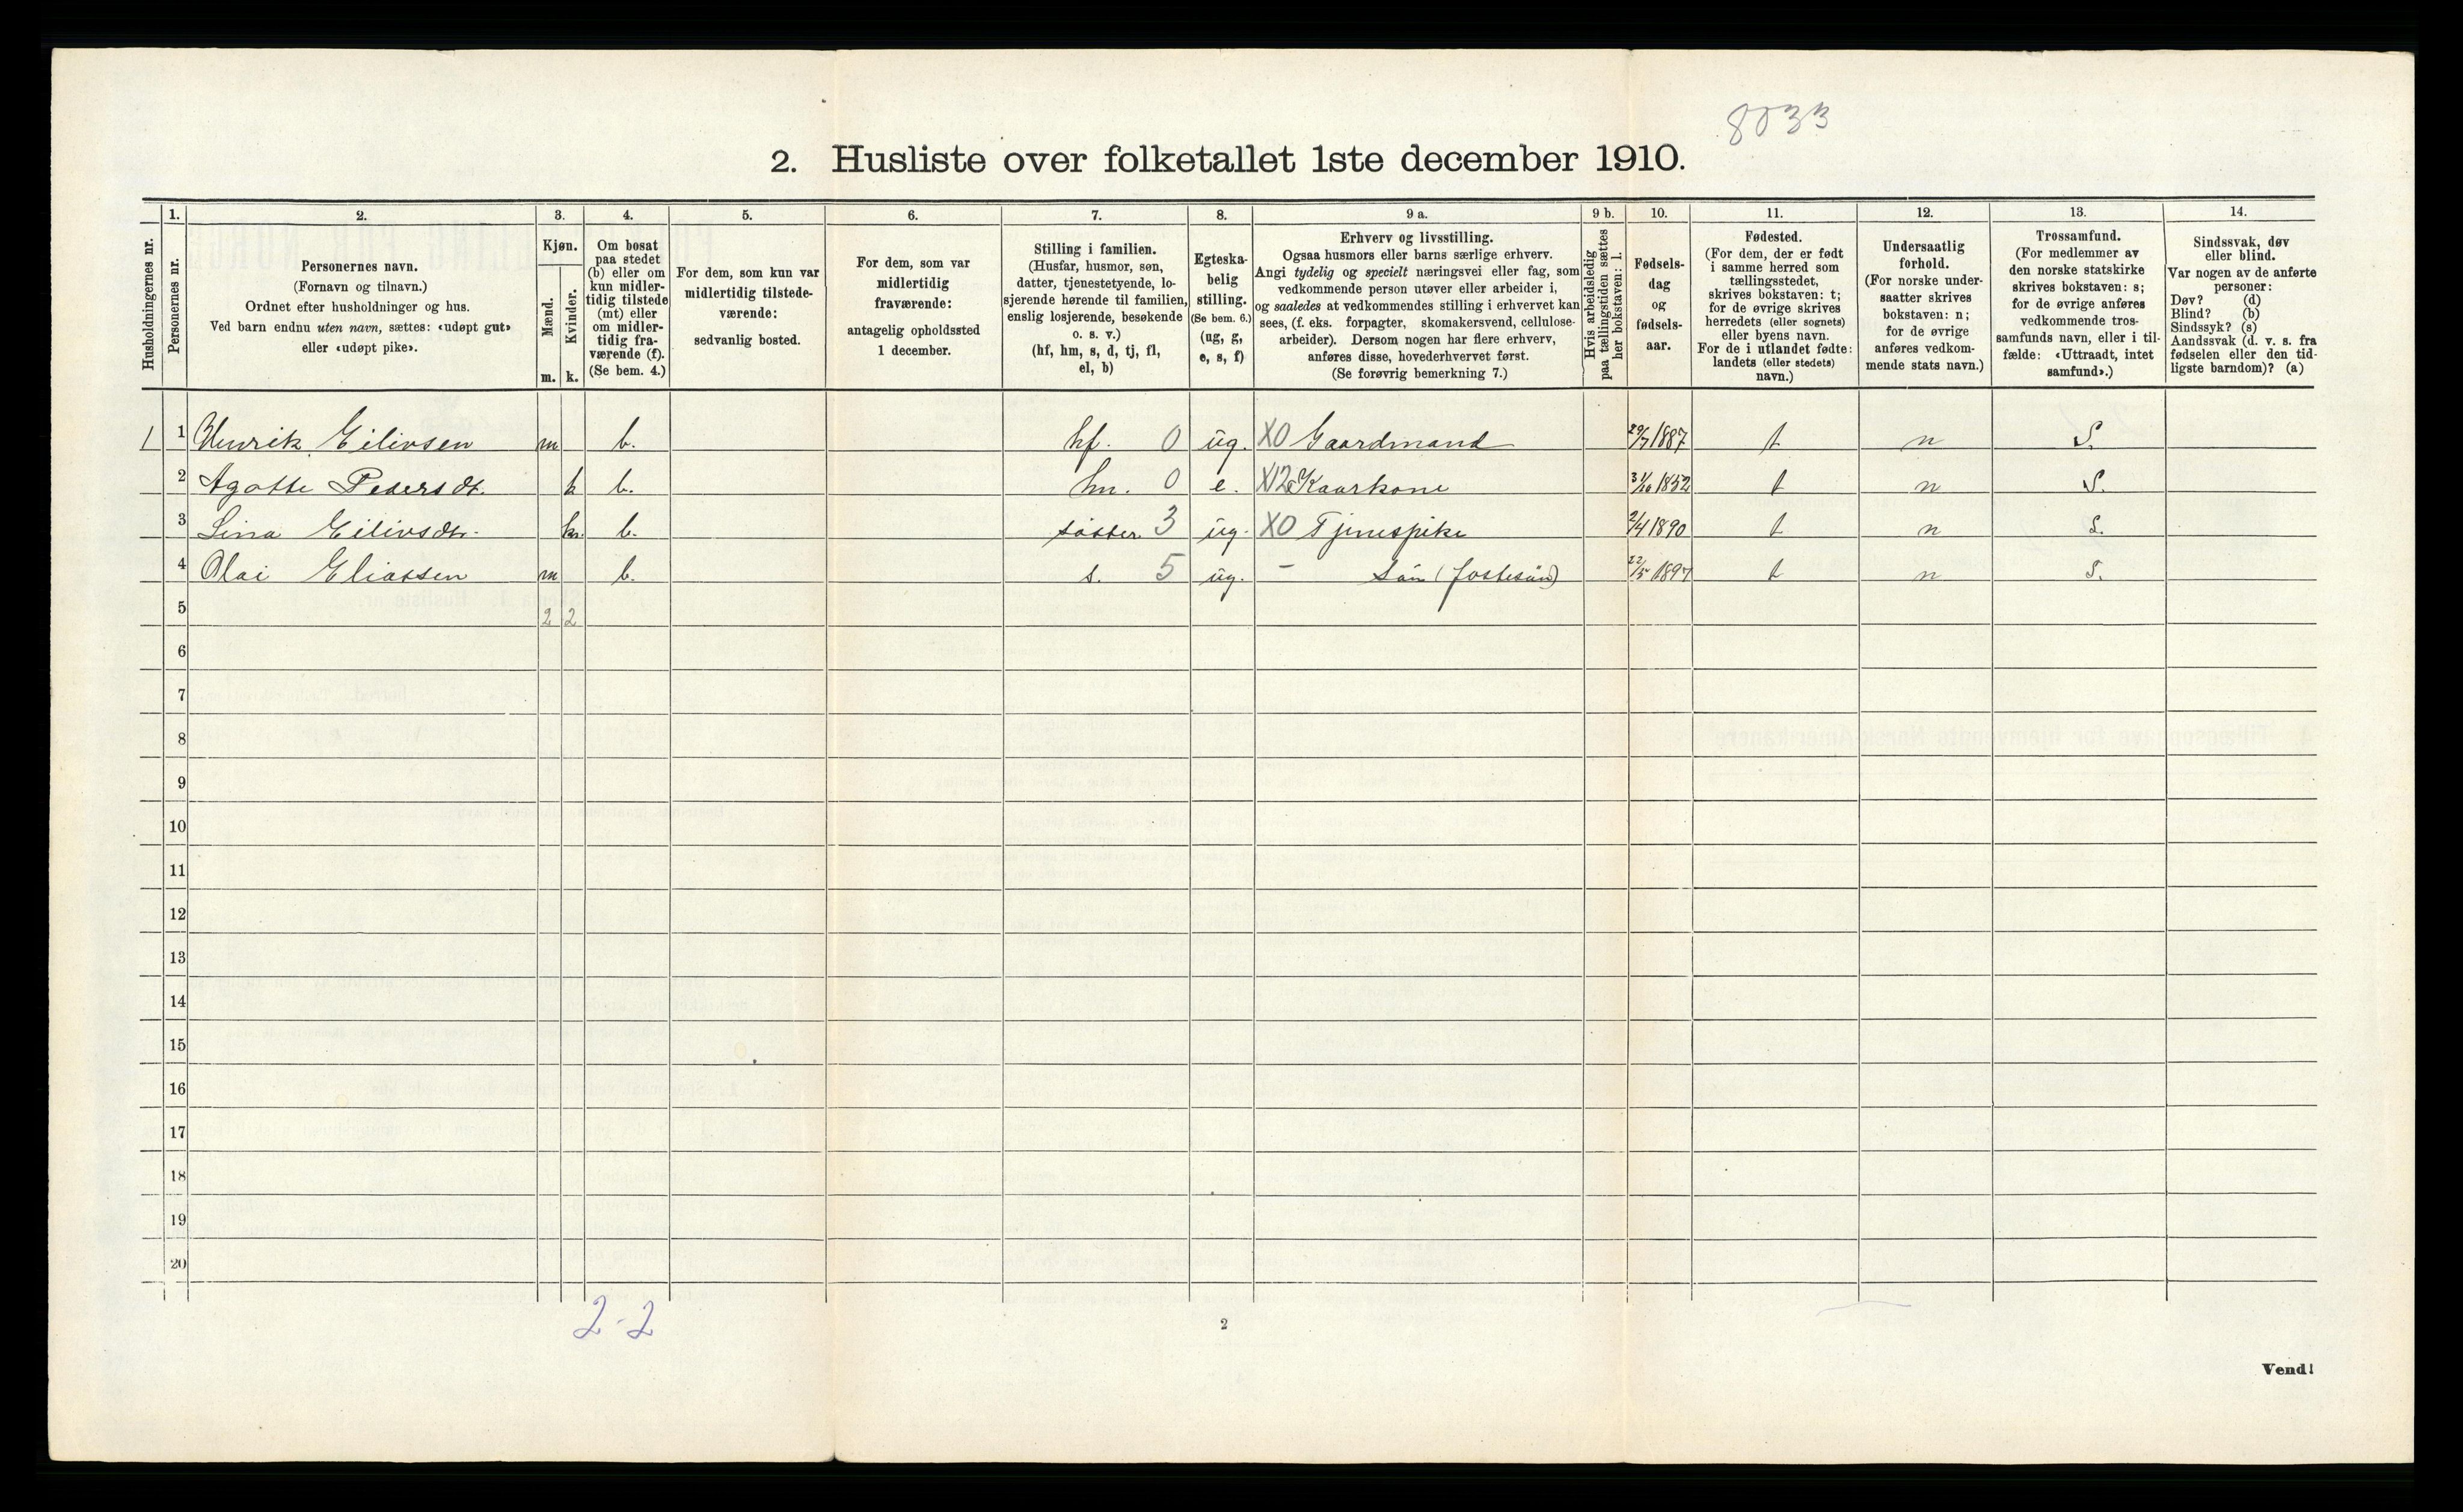 8033
2. Husliste over folketallet 1ste december 1910.
Husholdningernes nr.
1.
Personernes nr.
2.
Personernes navn.
(Fornavn og tilnavn.)
Ordnet efter husholdninger og hus.
Ved barn endnu uten navn, sættes: «udøpt gut»
eller «udøpt pike».
3.
Kjøn.
Mænd.
Kvinder.
m. k.
4.
Om bosat
paa stedet
(b) eller om
kun midler-
tidig tilstede
(mt) eller
om midler-
tidig fra-
værende (f).
(Se bem. 4.)
5.
For dem, som kun var
midlertidig tilstede-
værende:
sedvanlig bosted.
6.
For dem, som var
midlertidig
fraværende:
antagelig opholdssted
1 december.
7.
Stilling i familien.
(Husfar, husmor, søn,
datter, tjenestetyende, lo-
sjerende hørende til familien,
enslig losjerende, besøkende
o. s. v.)
(hf, hm, s, d, tj, fl,
el, b)
8.
Egteska-
belig
stilling.
(Se bem. 6.)
(ug, g,
e, s, f)
9 a.
Erhverv og livsstilling.
Ogsaa husmors eller barns særlige erhverv.
Angi tydelig og specielt næringsvei eller fag, som
vedkommende person utøver eller arbeider i,
og saaledes at vedkommendes stilling i erhvervet kan
sees, (f. eks. forpagter, skomakersvend, cellulose-
arbeider). Dersom nogen har flere erhverv,
anføres disse, hovederhvervet først.
(Se forøvrig bemerkning 7.)
9 b.
Hvis arbeidsledig
paa tællingstiden sættes
her bokstaven: l.
10.
Fødsels-
dag
og
fødsels-
aar.
11.
Fødested.
(For dem, der er født
i samme herred som
tællingsstedet,
skrives bokstaven: t;
for de øvrige skrives
herredets (eller sognets)
eller byens navn.
For de i utlandet fødte:
landets (eller stedets)
navn.)
12.
Undersaatlig
forhold.
(For norske under-
saatter skrives
bokstaven: n;
for de øvrige
anføres vedkom-
mende stats navn.)
13.
Trossamfund.
(For medlemmer av
den norske statskirke
skrives bokstaven: s;
for de øvrige anføres
vedkommende tros-
samfunds navn, eller i til-
fælde: «Uttraadt, intet
samfund».)
14.
Sindssvak, døv
eller blind.
Var nogen av de anførte
personer:
Døv? (d)
Blind? (b)
Sindssyk? (s)
Aandssvak (d. v. s. fra
fødselen eller den tid-
ligste barndom)? (a)
1 1 Henrik Eilivsen m b. hf. 0 ug. X0 Gaardmand 29/7 1887 t n S.
2 Agotte Pedersdt. k b. hm. 0 e. X12 Kaarkone 31/10 1852 t n S.
3 Lina Eilivsdtr. k. b. søster 3 ug. X0 Tjenespike 2/4 1890 t n S.
4 Olai Eliassen m b. s. 5 ug. – Søn (fostesøn) 22/5 1897 t n S.
5 2 2
6
7
8
9
10
11
12
13
14
15
16
17
18
19
20
2-2
2
Vend!